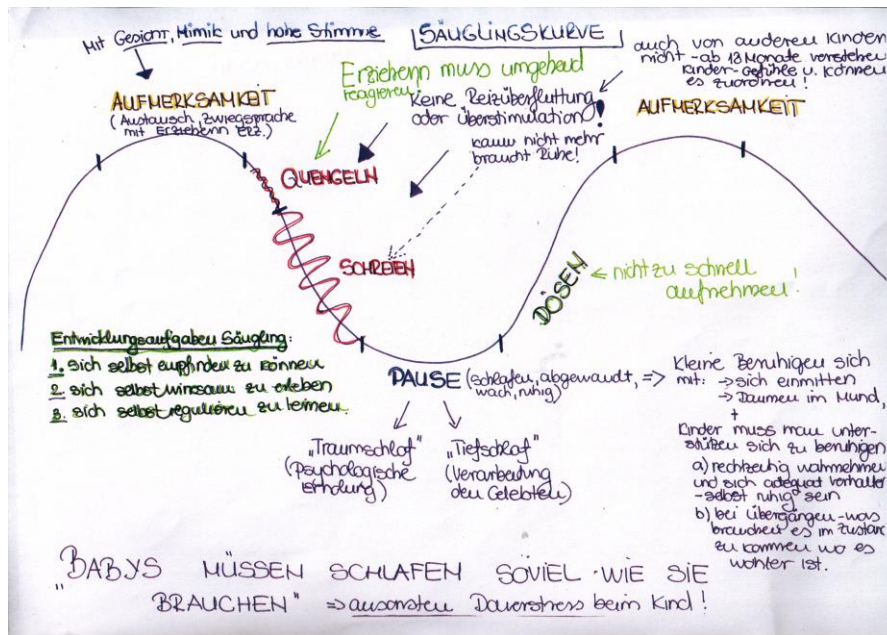 Mit Gesicht, Mimik und hohe Stimme
SÄUGLINGSKURVE
Erzieherin muss umgehend
reagieren!
auch von anderen Kindern
nicht - ab 18 Monate verstehen
Kinder-Gefühle u. können
es zuordnen!
AUFMERKSAMKEIT
(Austausch, Zwiegsprache
mit Erzieherin Erz.)
Keine Reizüberfluttung
oder Überstimulation!
kann nicht mehr
braucht Ruhe!
AUFMERKSAMKEIT
QUENGELN
SCHREIEN
DÖSEN
nicht zu schnell
aufnehmen!
Entwicklungsaufgaben Säugling:
1. sich selbst empfinden zu können
2. sich selbstwirksam zu erleben
3. sich selbst regulieren zu lernen
PAUSE (schlafen, abgewandt, =>
wach, ruhig)
Kleine Beruhigen sich
mit: → sich einmitten
→ Daumen im Mund,
+
Kinder muss man unter-
stützen sich zu beruhigen
a) rechtzeitig wahrnehmen
und sich adequat verhalten
- selbst ruhig sein
b) bei Übergängen - was
brauchen es im Zustand
zu kommen wo es
wohler ist.
„Traumschlaf"
(Psychologische
Erholung)
„Tiefschlaf"
(Verarbeitung
den Gelebten)
„BABYS MÜSSEN SCHLAFEN SOVIEL WIE SIE
BRAUCHEN" => ansonsten Dauerstress beim Kind!